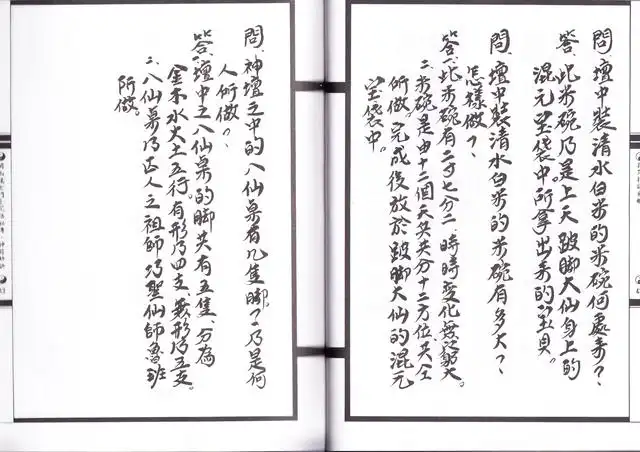 問、壇中裝清水白米的米碗何處來？、
答、此米碗乃是上天跛脚大仙身上的
混元宝袋中所拿出來的宝貝。
問、壇中裝清水白米的米碗有多大？、
怎樣做？、
答、一、此米碗有二寸七分二、時時變化無窮大。
二、米碗是由十二個天兵共分十二方位、共仝
所做。完成後放於跛脚大仙的混元
宝袋中。
問、神壇之中的八仙桌有几隻脚？、乃是何
人所做？、
答、壇中之八仙桌的脚共有五隻、分為
金木水火土五行。有形乃四支、無形乃五支。
二、八仙桌乃匠人之祖師巧聖仙師魯班
所做。